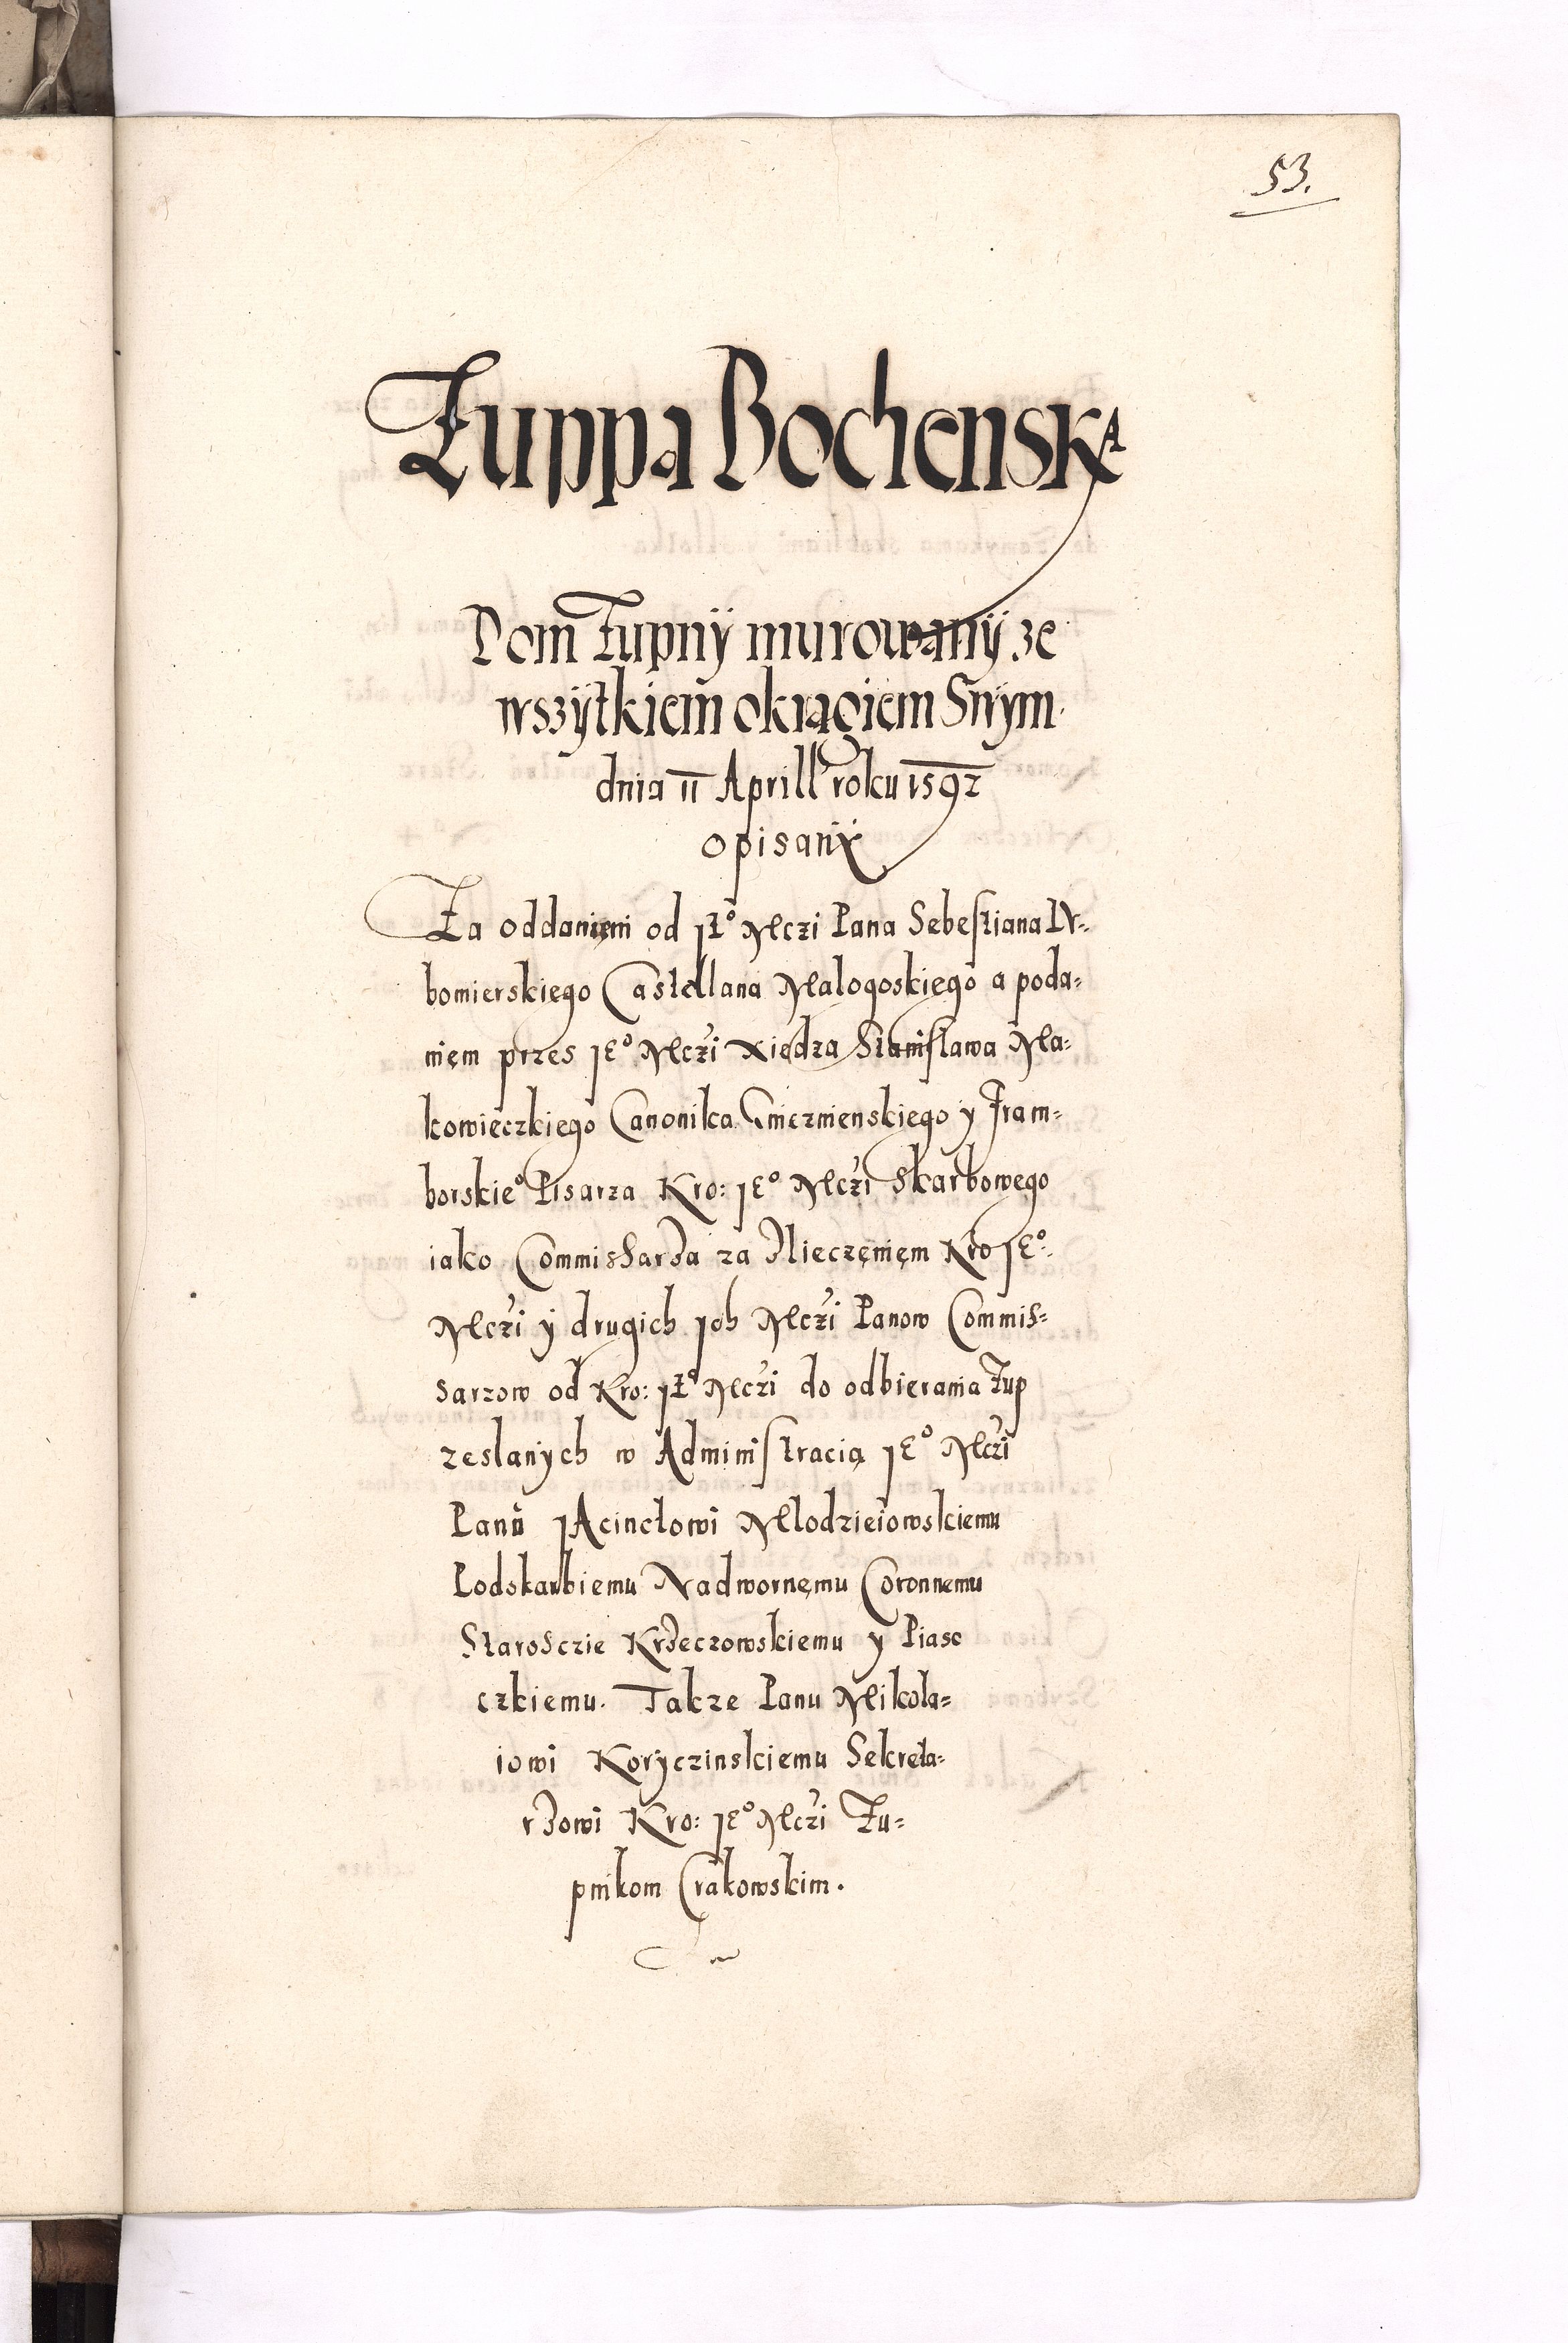 53.
Zuppa Bochenska
Dom Zupnÿ murowanÿ ze
wszÿtkiem okrągiem Swÿm.
dnia 11 Aprill roku 1592
opisanÿ
Za oddaniem od JE° Mczi Pana Sebestiana Lu-
bomierskiego Castellana Malogoskiego a poda-
niem przes JE° Mczi Xiędza Stanislawa Ma-
kowieczkiego Canonika Gnieznienskiego y Fram-
borskie° Pisarza Kro: JE° Mczi Skarbowego
iako Commissarza za zlieczęnięm Kro JE°
Mczi ÿ drugich Ich Mczi Panow Commis-
sarzow od Kro: JE° Mczi do odbierania Zup
zeslanÿch w Administracią JE° Mczi
Panu JAcinctowi Mlodzieiowskiemu
Podskarbiemu Nadwornęmu Coronnemu
Starosczie Krzeczowskiemu y Piase
czkiemu. Takze Panu Mikola-
iowi Korÿczinskiemu Sekreta-
rzowi Kro: JE° Mczi Zu-
pnikom Crakowskim.